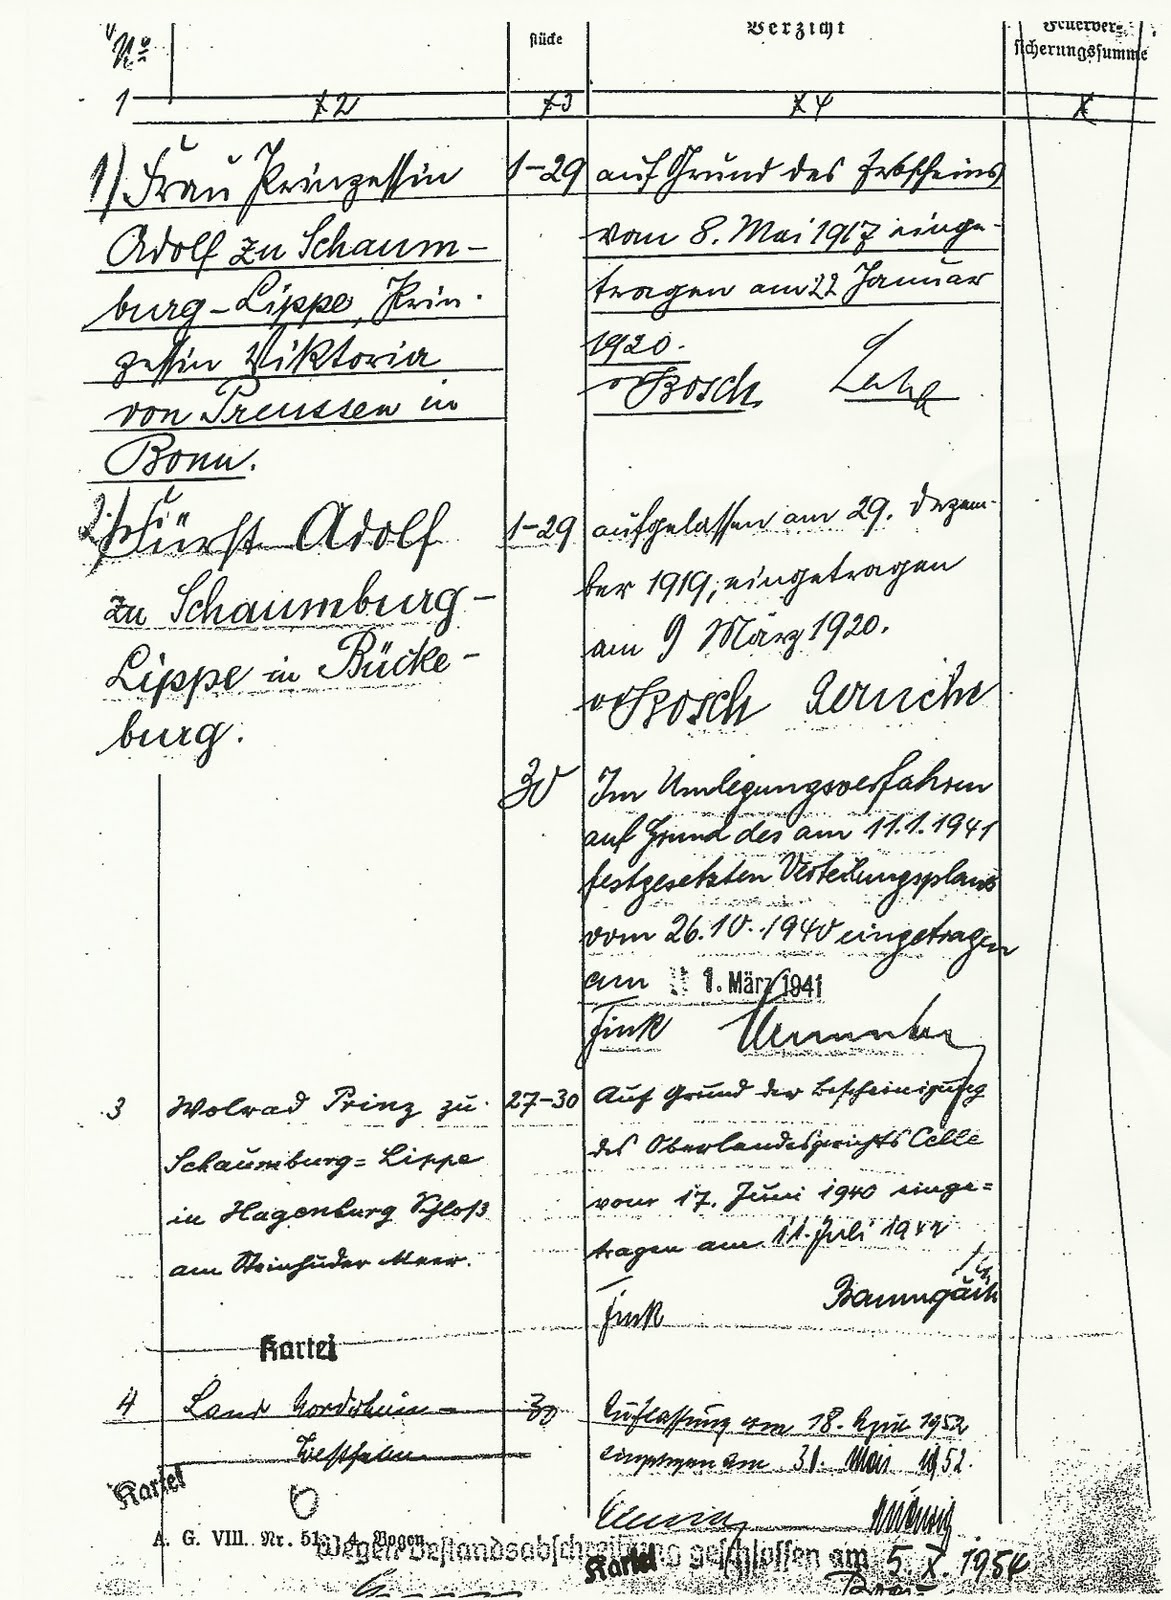 No
stücke
Verzicht
Feuerver-
sicherungssumme
1
2
3
4
1) Frau Prinzessin
Adolf zu Schaum-
burg-Lippe, Prin-
zessin Viktoria
von Preussen in
Bonn.
1-29
auf Grund des Erbscheins
vom 8. Mai 1917 einge-
tragen am 22 Januar
1920.
Bosch
2.) Fürst Adolf
zu Schaumburg-
Lippe in Bücke-
burg.
1-29
aufgelassen am 29. Dezem-
ber 1919, eingetragen
am 9 März 1920.
Bosch
30
Im Umlegungsverfahren
auf Grund des am 11.1.1941
festgesetzten Verteilungsplans
vom 26.10.1940 eingetragen
am 1. März 1941
Fink
3
Wolrad Prinz zu
Schaumburg=Lippe
in Hagenburg Schloß
am Steinhuder Meer.
27-30
Auf Grund der Bescheinigung
des Oberlandesgerichts Celle
vom 17. Juni 1940 einge=
tragen am 11. Juli
Fink
Baumgart
Kartei
4
Land Nordrhein-
Westfalen
30
Auflassung vom 18. April 1952
eingetragen am 30. Mai 1952.
Kartei
A. G. VIII. Nr. 51. 4. Bogen
Wegen Bestandsabschreibung geschlossen am 5. X. 1954
Kartei